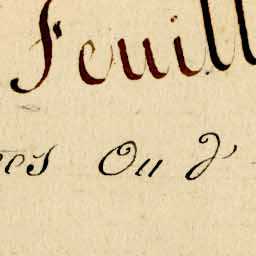 Feuill
es Ou d'